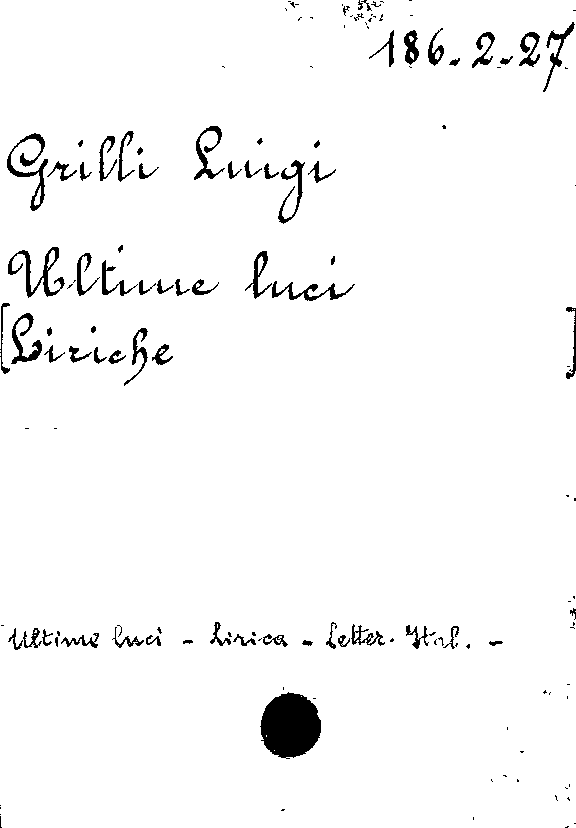 186-2-27
Grilli Luigi
Ultime luci
[Liriche]
Ultime luci - Lirica - Letter. Ital. -